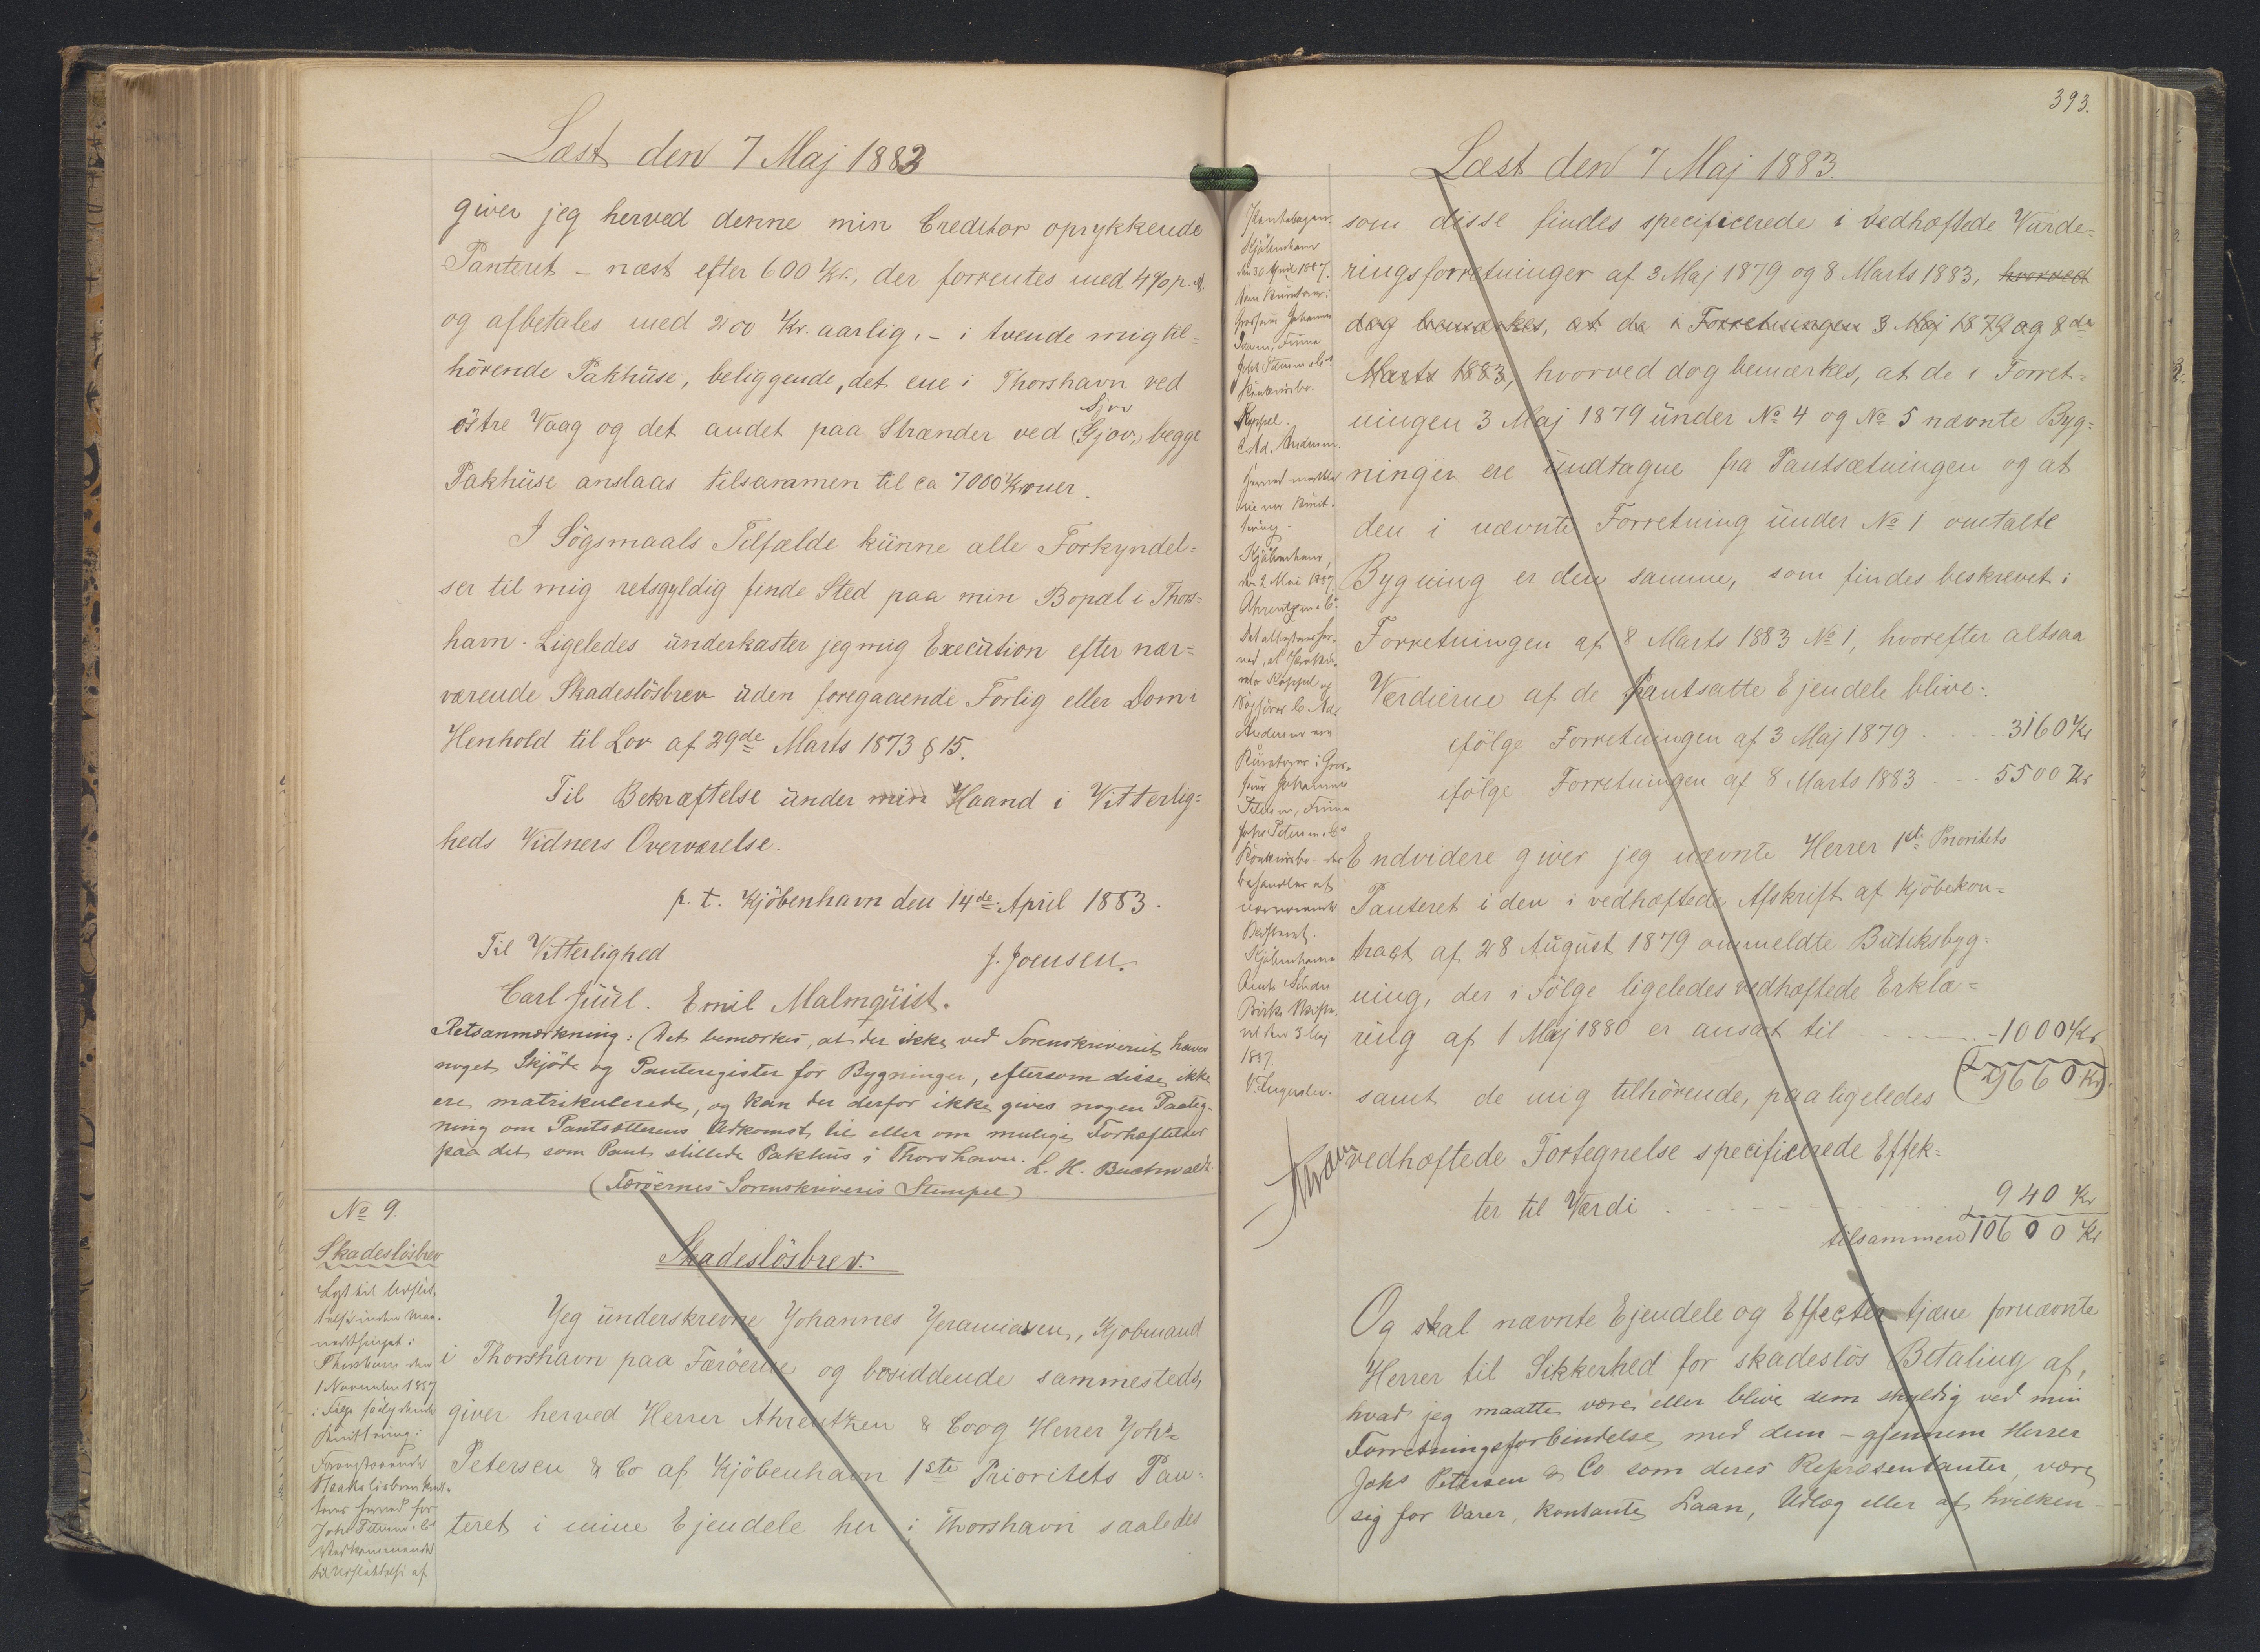 Læst den 7 Maj 1883
giver jeg herved denne min Creditor oprykkende
Panteret - næst efter 600 Kr., der forrentes med 4% p. A.
og afbetales med 200 Kr. aarlig. - i tvende mig til=
hörende Pakhüse, beliggende, det ene i Thorshavn ved
östre Vaag og det andet paa Strænder ved (Gjov,) begge
Sjov
Pakhüse anslaas tilsammen til ca 7000 Kroner.
I Sögsmaals Tilfælde künne alle Forkyndel=
ser til mig retsgyldig finde Sted paa min Bopæl i Thors=
havn. Ligeledes ünderkaster jeg mig Execütion efter nær=
værende Skadeslösbrev üden foregaaende Forlig eller Dom i
Henhold til Lov af 29de Marts 1873 § 15.
Til Bekræftelse ünder min Haand i Vitterlig=
heds Vidners Overværelse.
p. t. Kjöbenhavn den 14de April 1883.
Til Vitterlighed
J. Joensen.
Carl Jüül. Emil Malmqüist.
Retsanmærkning: Det bemærkes, at der ikke ved Sorenskriveriet haves
noget Skjöde og Panteregister for Bygninger, eftersom disse ikke
ere matrikulerede, og kan der derfor ikke gives nogen Paateg-
ning om Pantsætterens Adkomst til eller om mulige Forhæftelser
paa det som Pant stillede Pakhus i Thorshavn. L. H. Buchwaldt
(Færöernes Sorenskriveris Stempel)
No 9.
Skadeslösbrev
Lyst til Udslet-
telse inden Maa-
nedsthinget i
Thorshavn den
1 November 1887
i Fölge saalydende
Kvittering:
Foranstaaende
Skadeslösbrev kvit-
teres herved for
Johs Petersen & Co
Vedkommende
til Udslettelse af
Skadeslösbrev.
Jeg ünderskrevne Johannes Jeramiasen, Kjöbmand
i Thorshavn paa Færöerne og bosiddende sammesteds,
giver herved Herrer Ahrentzen & Co og Herrer Johs
Petersen & Co af Kjöbenhavn 1ste Prioritets Pan=
teret i mine Ejendele her i Thorshavn saaledes
393.
Læst den 7 Maj 1883.
Pantebogen.
Kjöbenhavn
den 30 April 1887.
Som Kuratorer i
Grosserer Johannes
Petersen, Firma
Johs Petersen & Co
Konkursbo.
Koppel.
C. Ad. Andersen.
Kjöbenhavn,
den 2 Mai 1887.
Ahrentzen & Co
Det attesteres her-
ved, at
Koppel og
C. Ad.
Andersen ere
Kuratorer i Gros-
serer Johannes
Petersen, Firma
Johs Petersen & Co
Konkursbo - der
behandles af
nærværende
Skifteret.
Kjöbenhavns
Amts Söndre
Birks Skifte-
ret den 3 Maj
1887
som disse findes specificerede i vedhæftede Vürde=
ringsforretninger af 3 Maj 1879 og 8 Marts 1883, hvorved
dog bemærkes, at de i Forretningen 3 Maj 1879 og 8de
Marts 1883, hvorved dog bemærkes, at de i Forret=
ningen 3 Maj 1879 ünder No 4 og No 5 nævnte Byg=
ninger ere ündtagne fra Pantsætningen og at
den i nævnte Forretning ünder No 1 omtalte
Bygning er den samme, som findes beskrevet i
Forretningen af 8 Marts 1883 No 1, hvorefter altsaa
Værdierne af de pantsatte Ejendele blive:
ifölge Forretningen af 3 Maj 1879 - - - 3160 Kr
ifölge Forretningen af 8 Marts 1883 - - - 5500 Kr
Endvidere giver jeg nævnte Herrer 1ste Prioritets
Panteret i den i vedhæftede Afskrift af Kjöbekon=
tract af 28 Aügüst 1879 ommeldte Bütiksbyg=
ning, der i Fölge ligeledes vedhæftede Erklæ=
ring af 1 Maj 1880 er ansat til - - - 1000 Kr
(9660 Kr)
samt de mig tilhörende, paa ligeledes
vedhæftede Fortegnelse specificerede Effek=
ter til Værdi - - - 940 Kr
tilsammen 10600 Kr
Og skal nævnte Ejendele og Effecter tjene fornævnte
Herrer til Sikkerhed for skadeslös Betaling af,
hvad jeg maatte være eller blive dem skyldig ved min
Forretningsforbindelse med dem - gjennem Herrer
Johs Petersen & Co som deres Repræsentanter, være
sig for Varer, kontante Laan, Udlæg eller af hvilken-